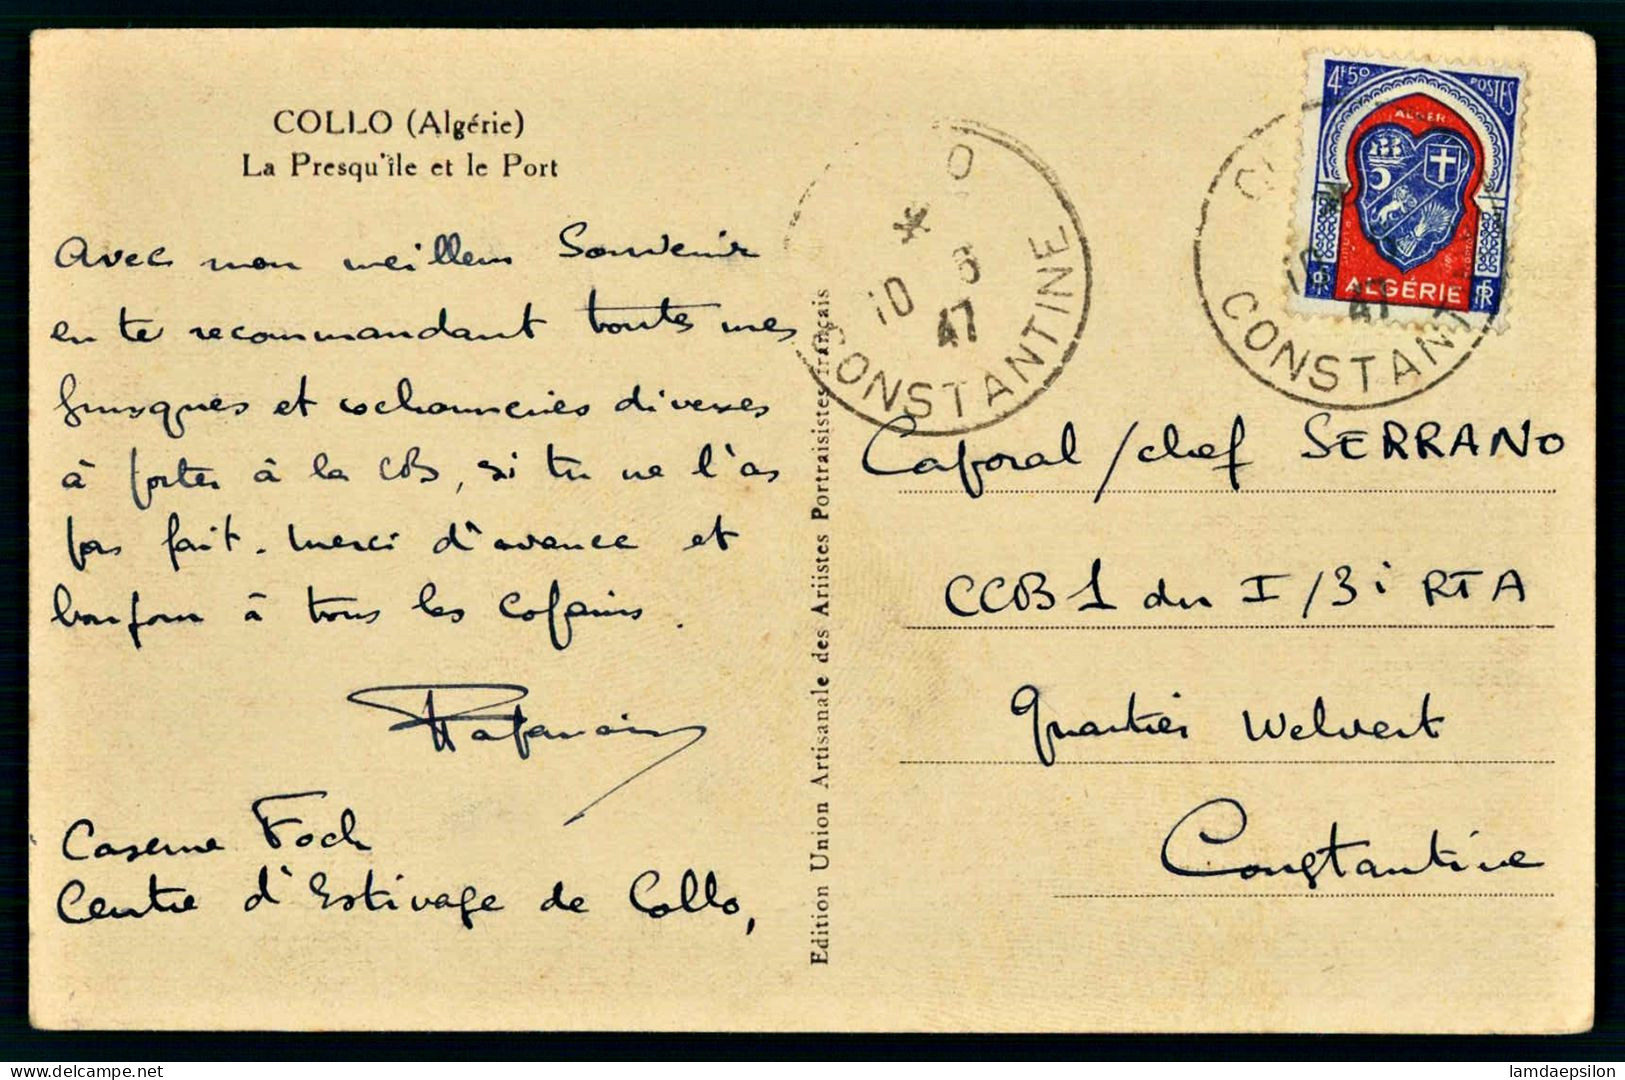 COLLO (Algérie)
La Presqu'île et le Port
Avec mon meilleur Souvenir
en te recommandant toutes mes
frusques et cochonneries diverses
à porter à la CB, si tu ne l'as
pas fait. Merci d'avance et
bonjour à tous les copains.
Caserne Foch
Centre d'Estivage de Collo,
Edition Union Artisanale des Ariistes Portraisistes français
10 8
47
CONSTANTINE
4F50
POSTES
ALGER
ALGÉRIE
RF
10 8
47
CONSTANTINE
Caporal/chef SERRANO
CCB1 du I/3i RTA
Quartier Welvert
Constantine
http://www.delcampe.net
lamdaepsilon